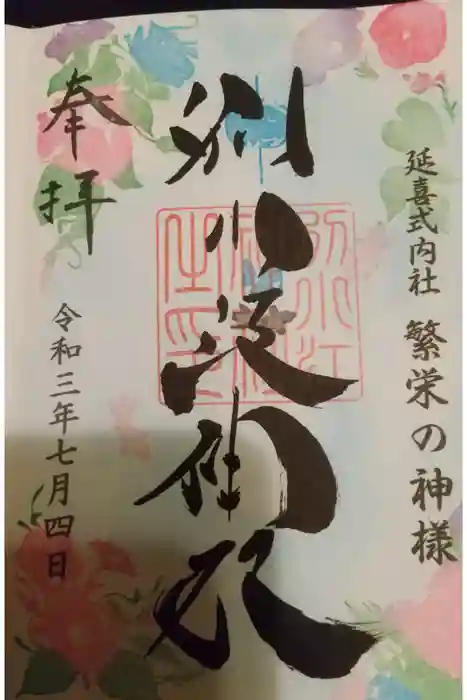 延喜式内社 繁栄の神様
別小江神社
別小江
神社
之印
奉拝
令和三年七月四日